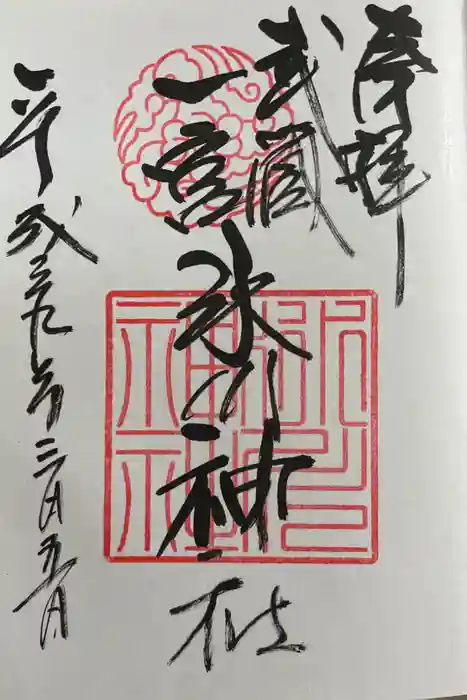 奉拝
武蔵
一宮
氷川神社
平成二九年三月五日
氷川
神社